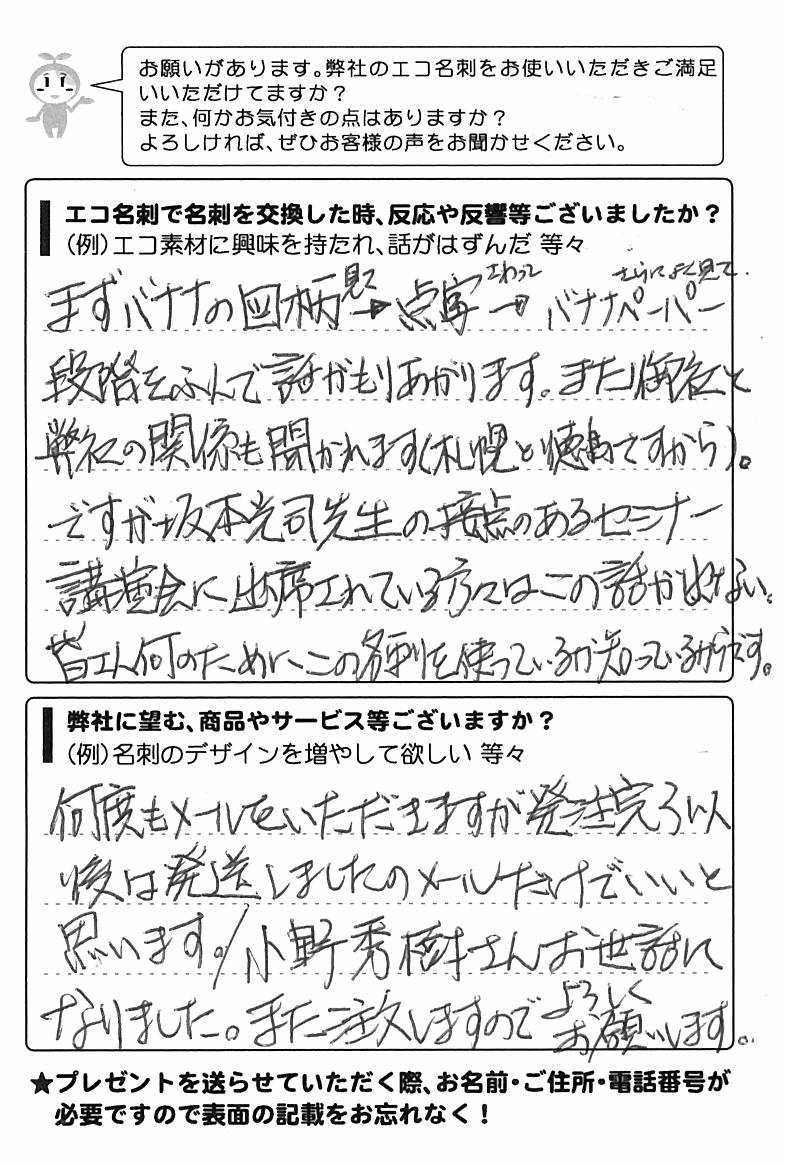 お願いがあります。弊社のエコ名刺をお使いいただきご満足
いいただけてますか？
また、何かお気付きの点はありますか？
よろしければ、ぜひお客様の声をお聞かせください。
エコ名刺で名刺を交換した時、反応や反響等ございましたか？
（例）エコ素材に興味を持たれ、話がはずんだ 等々
まずバナナの図柄見て→点字さわって→さらによく見て。バナナペーパー
段階をふんで話がもりあがります。また御社と
弊社の関係も聞かれます（札幌と徳島ですから）。
ですが坂本光司先生の接点のあるセミナー
講演会に出席されている方々はこの話が出ない。
皆さん何のために、この名刺を使っているか知っているからです。
弊社に望む、商品やサービス等ございますか？
（例）名刺のデザインを増やして欲しい 等々
何度もメールをいただきますが発注完了以
後は発送しましたのメールだけでいいと
思います。/小野秀樹さんお世話に
なりました。また注文しますのでよろしく
お願いします。
★プレゼントを送らせていただく際、お名前・ご住所・電話番号が
必要ですので表面の記載をお忘れなく！